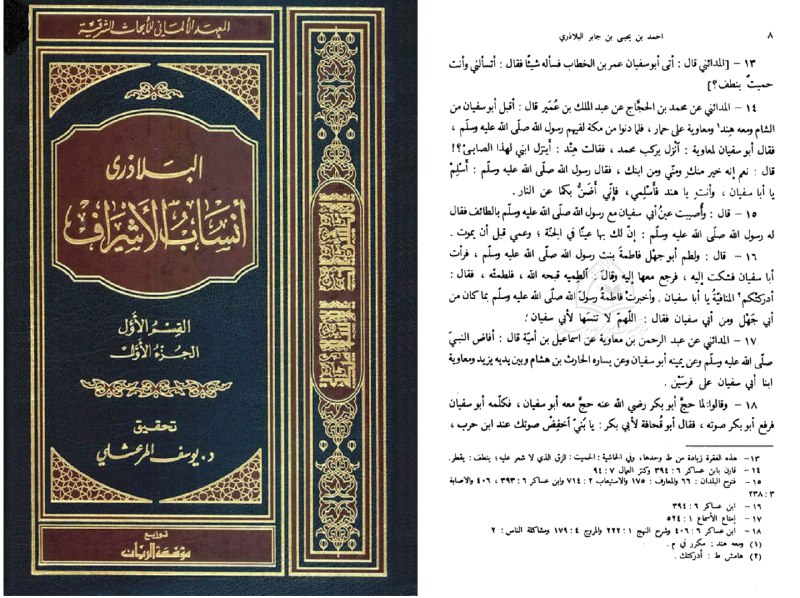 المعهد الألماني للأبحاث الشرقية
البلاذرى
أنساب الأشراف
القسم الأول
الجزء الأول
تحقيق
د. يوسف المرعشلي
توزيع
مؤسسة الريان
احمد بن يحيى بن جابر البلاذري
٨
١٣ – [المدائني قال : أتى أبو سفيان عمر بن الخطاب فسأله شيئًا فقال : أتسألني وأنت
حميتٌ بنطف؟]
١٤ – المدائني عن محمد بن الحجّاج عن عبد الملك بن عُمَير قال : أقبل أبو سفيان من
الشام ومعه هِند¹ ومعاوية على حمار ، فلما دنوا من مكة لقيهم رسول الله صلّى الله عليه وسلّم ،
فقال أبو سفيان لمعاوية : أنزل يركب محمد ، فقالت هِنْد : أينزل ابني لهذا الصابئ؟!
قال : نعم إنه خير منكِ ومنّي ومن ابنك ، فقال رسول الله صلّى الله عليه وسلّم : أَسْلِمْ
يا أبا سفيان ، وأنتِ يا هند فأَسْلِمي ، فإنّي أَضَنُّ بكما عن النار .
١٥ – قال : وأُصيبت عينُ أبي سفيان مع رسول الله صلّى الله عليه وسلّم بالطائف فقال
له رسول الله صلّى الله عليه وسلّم : إنّ لك بها عينًا في الجنّة ؛ وعمي قبل أن يموت .
١٦ – قال : ولطم أبو جهْل فاطمةَ بنت رسول الله صلّى الله عليه وسلّم ، فرأت
أبا سفيان فشكت إليه ، فرجع معها إليه وقال : الطميه قبحه الله ، فلطمتْه ، فقال :
أدركتْكم² المنافيّةُ يا أبا سفيان . وأخبرتْ فاطمةُ رسولَ الله صلّى الله عليه وسلّم بما كان من
أبي جَهْل ومن أبي سفيان فقال : اللّهمّ لا تنسَها لأبي سفيان ؛
١٧ – المدائني عن عبد الرحمن بن معاوية عن اسماعيل بن أميّة قال : أفاض النبيّ
صلّى الله عليه وسلّم وعن يمينه أبو سفيان وعن يساره الحارث بن هشام وبين يديه يزيد ومعاوية
ابنا أبي سفيان على فرسَيْن .
١٨ – وقالوا : لما حجّ أبو بكر رضي الله عنه حجّ معه أبو سفيان ، فكلّمه أبو سفيان
فرفع أبو بكر صوته ، فقال أبو قُحافة لأبي بكر : يا بُنيّ أخفِضْ صوتك عند ابن حرب ،
١٣ – هذه الفقرة زيادة من ط وحدها، وفي الحاشية : الحميت : الزق الذي لا شعر عليه ؛ ينطف : يقطر.
١٤ – قارن بابن عساكر ٦ : ٣٩٤ وكنز العمال ٧ : ٩٤
١٥ – فتوح البلدان : ٦٦ والمعارف : ١٧٥ والاستيعاب ٢ : ٧١٤ وابن عساكر ٦ : ٣٩٣ ، ٤٠٦ والاصابة
٣ : ٢٣٨
١٦ – ابن عساكر ٦ : ٣٩٤
١٧ – إمتاع الأسماع ١ : ٥٢٤
١٨ – ابن عساكر ٦ : ٤٠٦ وشرح النهج ١ : ٢٢٢ والمروج ٤ : ١٧٩ ومشاكلة الناس : ٢
(١) ومعه هند : مكرر في م .
(٢) هامش ط : أدركتك .